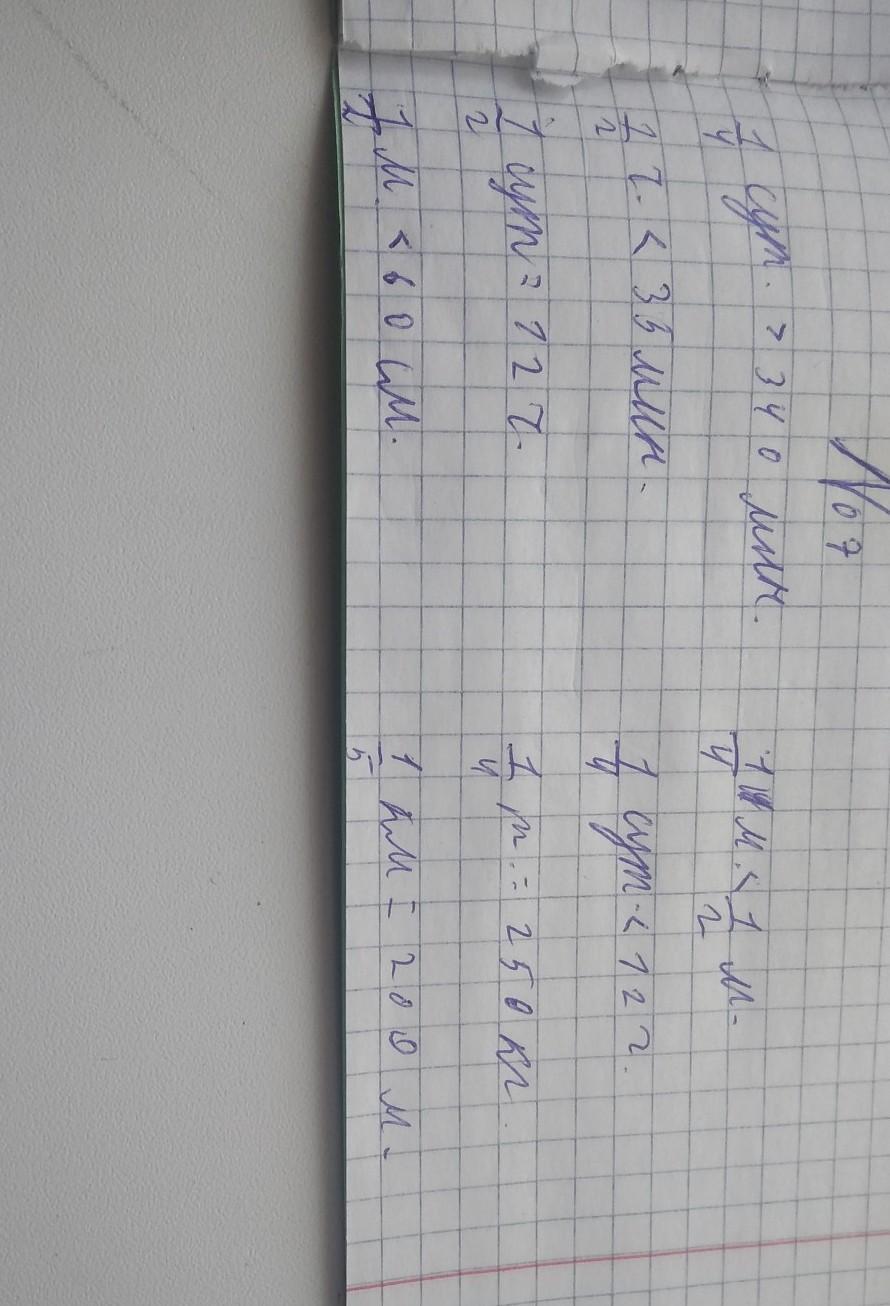 № 7
1/4 сут. > 340 мин. 1/4 м. < 1/2 м.
1/2 ч. < 35 мин. 1/4 сут. < 12 ч.
1/2 сут = 12 ч. 1/4 т. = 250 кг.
1/2 м. < 60 см. 1/5 км = 200 м.